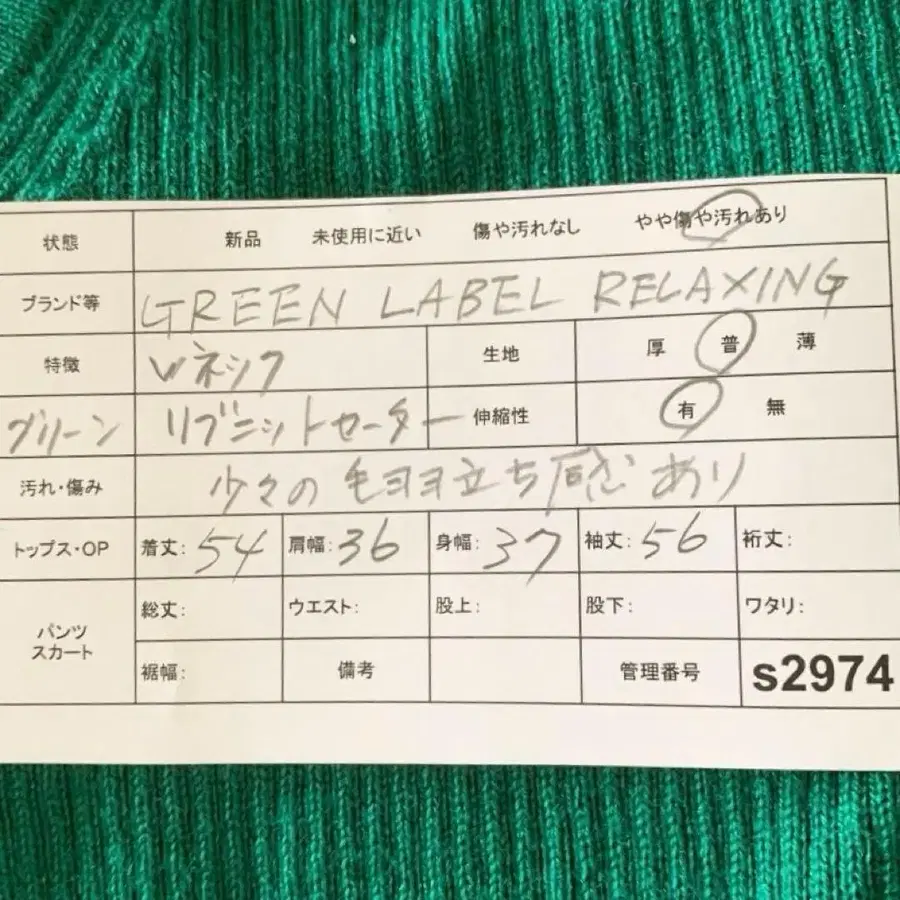 状態 新品 未使用に近い 傷や汚れなし やや傷や汚れあり
ブランド等 GREEN LABEL RELAXING
特徴 Vネック 生地 厚 普 薄
グリーン リブニットセーター 伸縮性 有 無
汚れ・傷み 少々の毛ヨヨ立ち感あり
トップス・OP 着丈: 54 肩幅: 36 身幅: 37 袖丈: 56 裄丈:
パンツ
スカート
総丈: ウエスト: 股上: 股下: ワタリ:
裾幅: 備考 管理番号 s2974